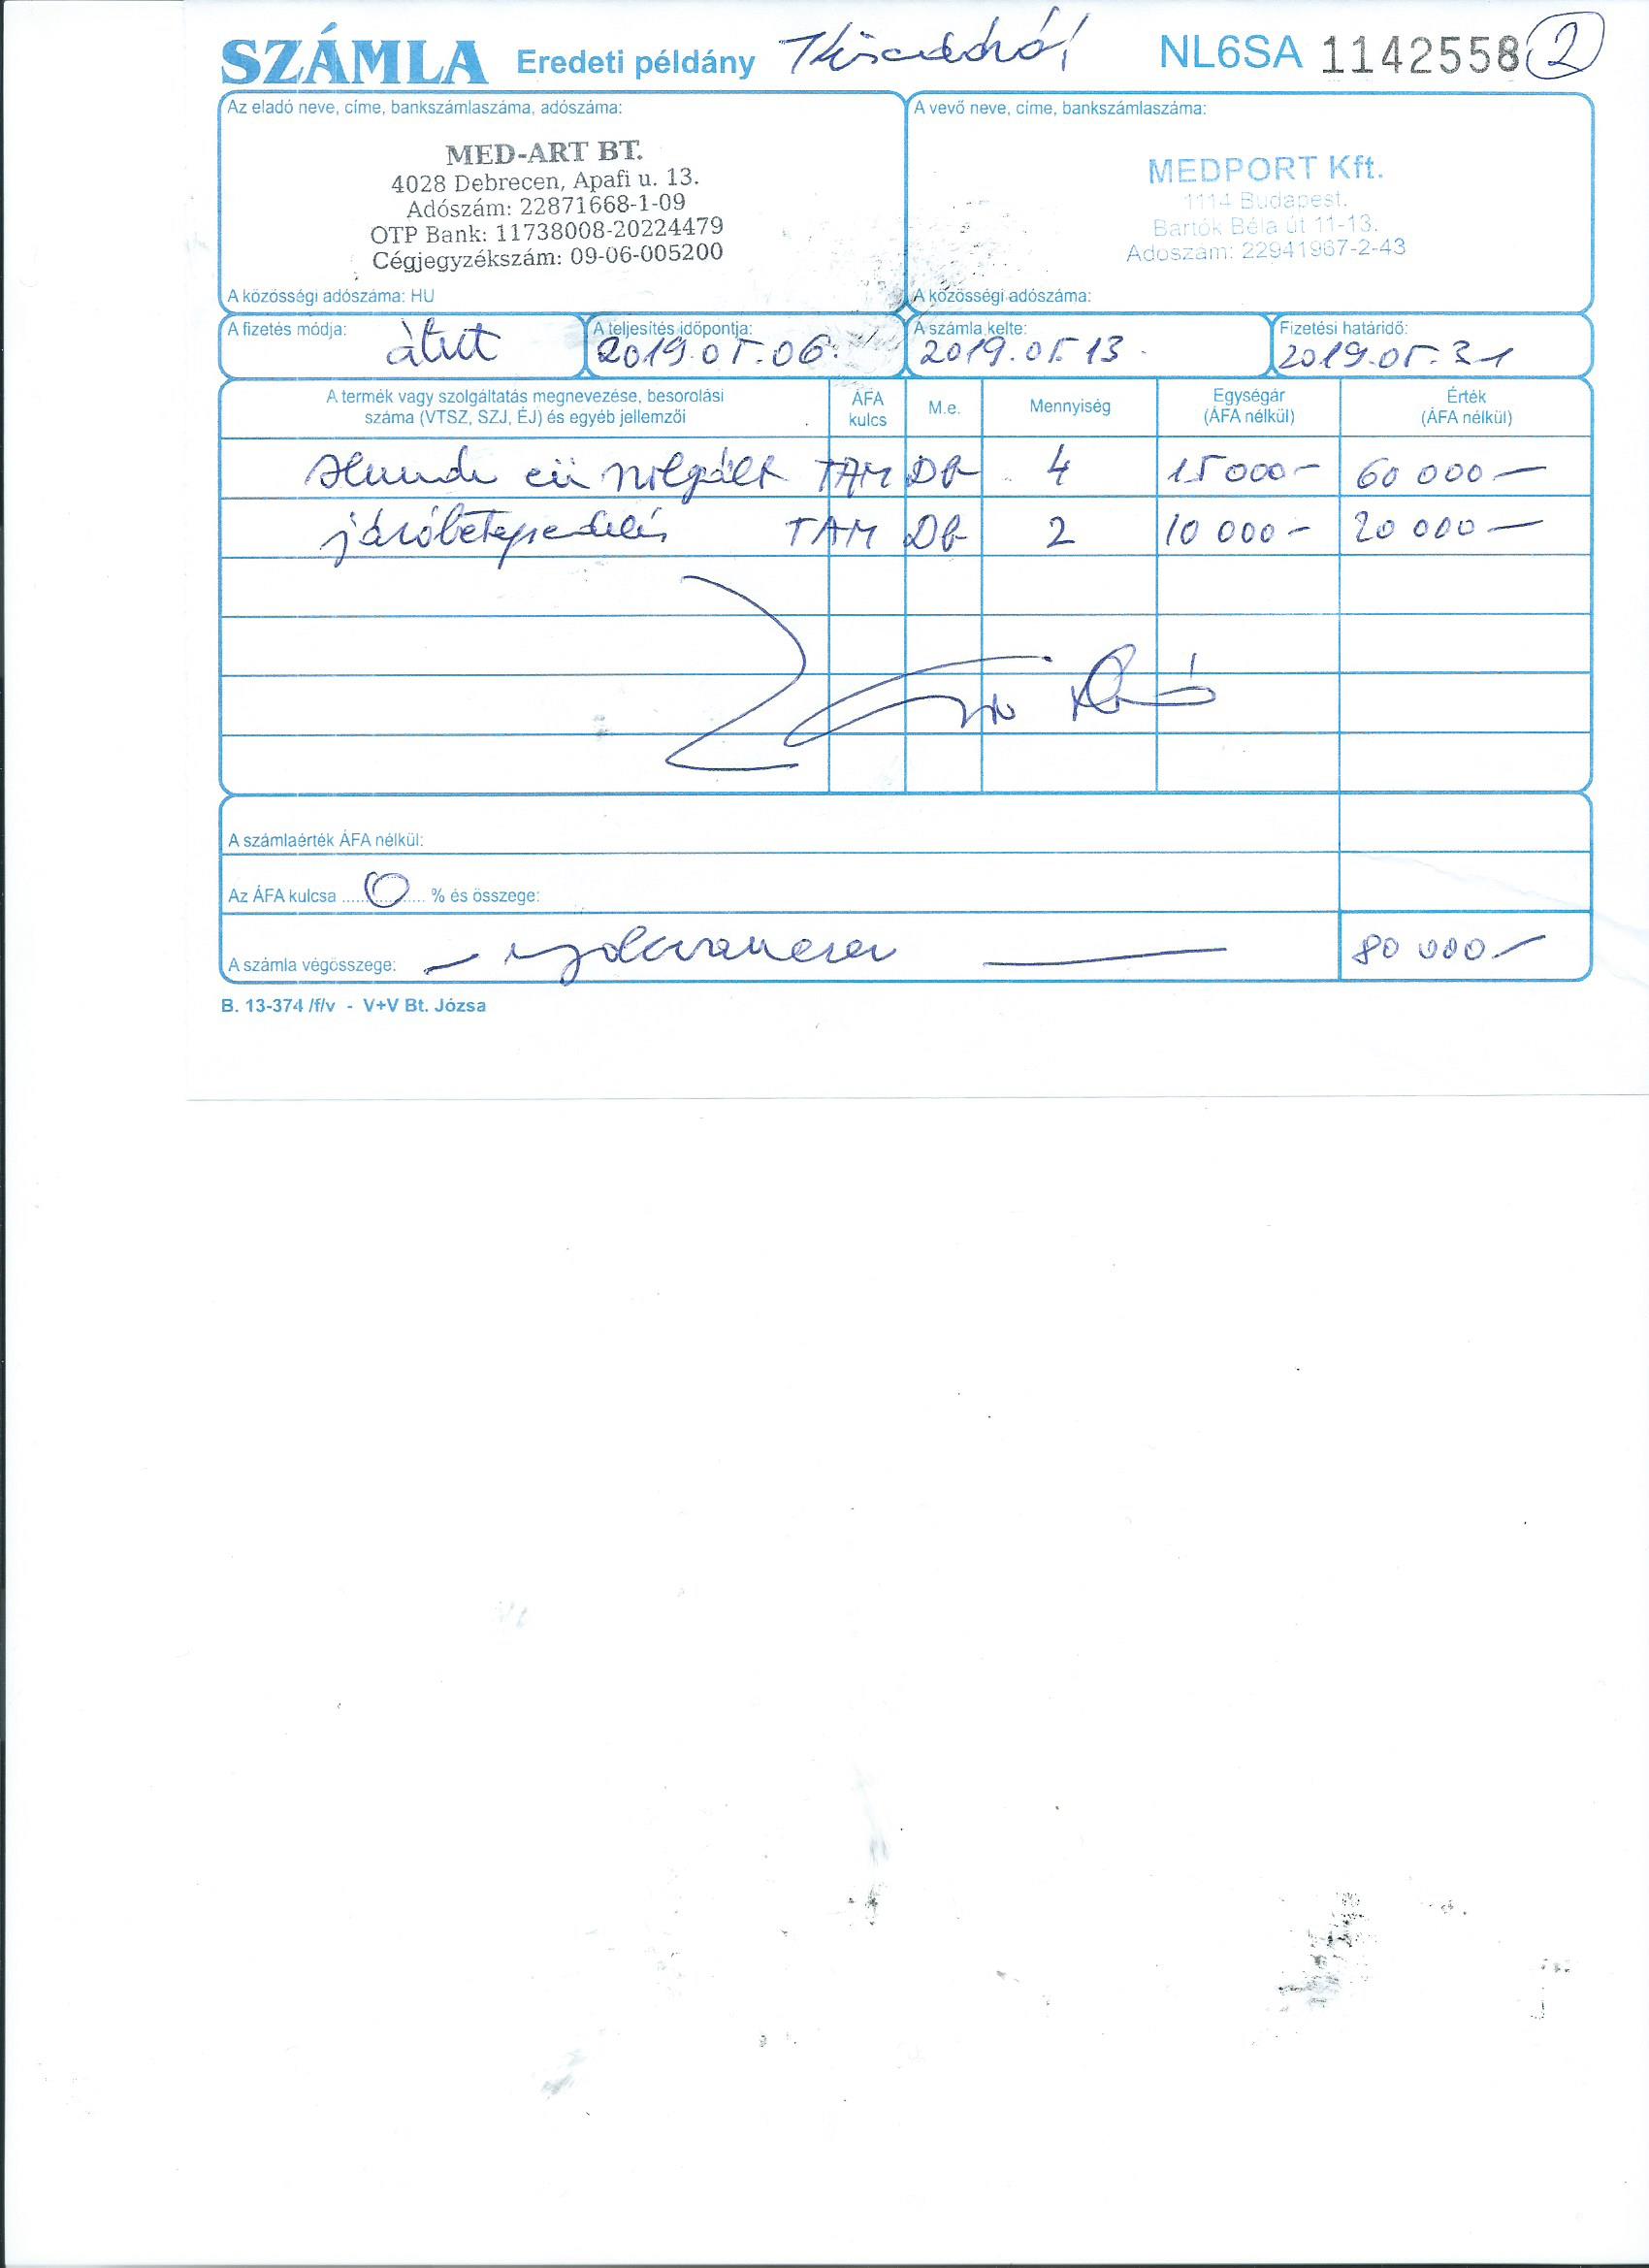 SZÁMLA Eredeti példány NL6SA 1142558 2
Az eladó neve, címe, bankszámlaszáma, adószáma:
MED-ART BT.
4028 Debrecen, Apafi u. 13.
Adószám: 22871668-1-09
OTP Bank: 11738008-20224479
Cégjegyzékszám: 09-06-005200
A közösségi adószáma: HU
A vevő neve, címe, bankszámlaszáma:
MEDPORT Kft.
1114 Budapest.
Bartók Béla út 11-13.
Adószám: 22941967-2-43
A közösségi adószáma:
A fizetés módja: átut
A teljesítés időpontja: 2019.05.06.
A számla kelte: 2019.05.13.
Fizetési határidő: 2019.05.31
A termék vagy szolgáltatás megnevezése, besorolási száma (VTSZ, SZJ, ÉJ) és egyéb jellemzői
ÁFA kulcs
M.e.
Mennyiség
Egységár (ÁFA nélkül)
Érték (ÁFA nélkül)
eü TAM DB 4 15 000- 60 000-
járóbetegrendelés TAM DB 2 10 000- 20 000-
A számlaérték ÁFA nélkül:
Az ÁFA kulcsa 0 % és összege:
A számla végösszege: - nyolcvanezer - 80 000-
B. 13-374 /f/v - V+V Bt. Józsa